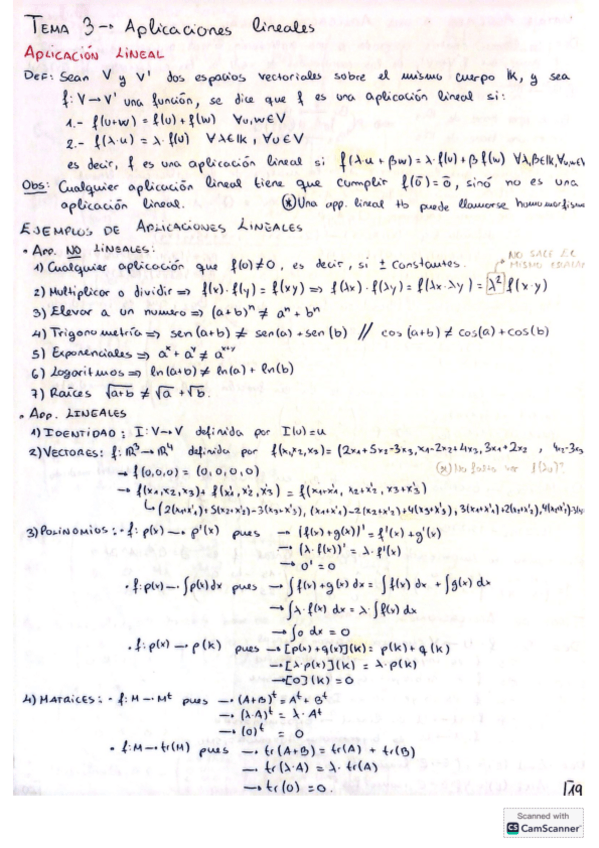 TEMA 3 → Aplicaciones lineales
APLICACIÓN LINEAL
DEF: Sean V y V' dos espacios vectoriales sobre el mismo cuerpo IK, y sea
f: V → V' una función, se dice que f es una aplicación lineal si:
1.- f(u+w) = f(u) + f(w) ∀u,w∈V
2.- f(λ·u) = λ·f(u) ∀λ∈IK, ∀u∈V
es decir, f es una aplicación lineal si f(λu+βw) = λ·f(u) + β f(w) ∀λ,β∈IK, ∀u,w∈V
Obs: Cualquier aplicación lineal tiene que cumplir f(0̄) = 0̄, sinó no es una
aplicación lineal. (*) Una app. lineal tb puede llamarse homomorfismo
EJEMPLOS DE APLICACIONES LINEALES
• App. NO LINEALES:
1) Cualquier aplicación que f(0)≠0, es decir, si ± constantes.
NO SALE EL
MISMO
2) Multiplicar o dividir ⇒ f(x)·f(y) = f(xy) ⇒ f(λx)·f(λy) = f(λx·λy) = λ² f(x·y)
3) Elevar a un numero ⇒ (a+b)ⁿ ≠ aⁿ + bⁿ
4) Trigonometría ⇒ sen(a+b) ≠ sen(a) + sen(b) // cos(a+b) ≠ cos(a) + cos(b)
5) Exponenciales ⇒ aˣ + aʸ ≠ aˣ⁺ʸ
6) Logaritmos ⇒ ln(a+b) ≠ ln(a) + ln(b)
7) Raíces √a+b ≠ √a + √b.
• App. LINEALES
1) IDENTIDAD: I: V→V definida por I(u)=u
2) VECTORES: f: IR³ → IR⁴ definida por f(x₁,x₂,x₃) = (2x₁+5x₂-3x₃, x₁-2x₂+4x₃, 3x₁+2x₂, 4x₂-3x₃
→ f(0,0,0) = (0,0,0,0)
→ f(x₁,x₂,x₃) + f(x₁',x₂',x₃') = f(x₁+x₁', x₂+x₂', x₃+x₃')
3) POLINOMIOS: • f: p(x) → p'(x) pues → (f(x)+g(x))' = f'(x)+g'(x)
→ (λ·f(x))' = λ·f'(x)
→ 0' = 0
• f: p(x) → ∫p(x)dx pues → ∫f(x)+g(x) dx = ∫f(x) dx + ∫g(x) dx
→ ∫λ·f(x) dx = λ·∫f(x)
→ ∫0 dx = 0
• f: p(x) → p(k) pues → [p(x)+q(x)](k) = p(k)+q(k)
→ [λ·p(x)](k) = λ·p(k)
→ [0](k) = 0
4) MATRICES: • f: M → Mᵗ pues → (A+B)ᵗ = Aᵗ + Bᵗ
→ (λ·A)ᵗ = λ·Aᵗ
→ (0)ᵗ = 0
• f: M → tr(M) pues → tr(A+B) = tr(A) + tr(B)
→ tr(λ·A) = λ·tr(A)
→ tr(0) = 0.
19
Scanned with
CS CamScanner